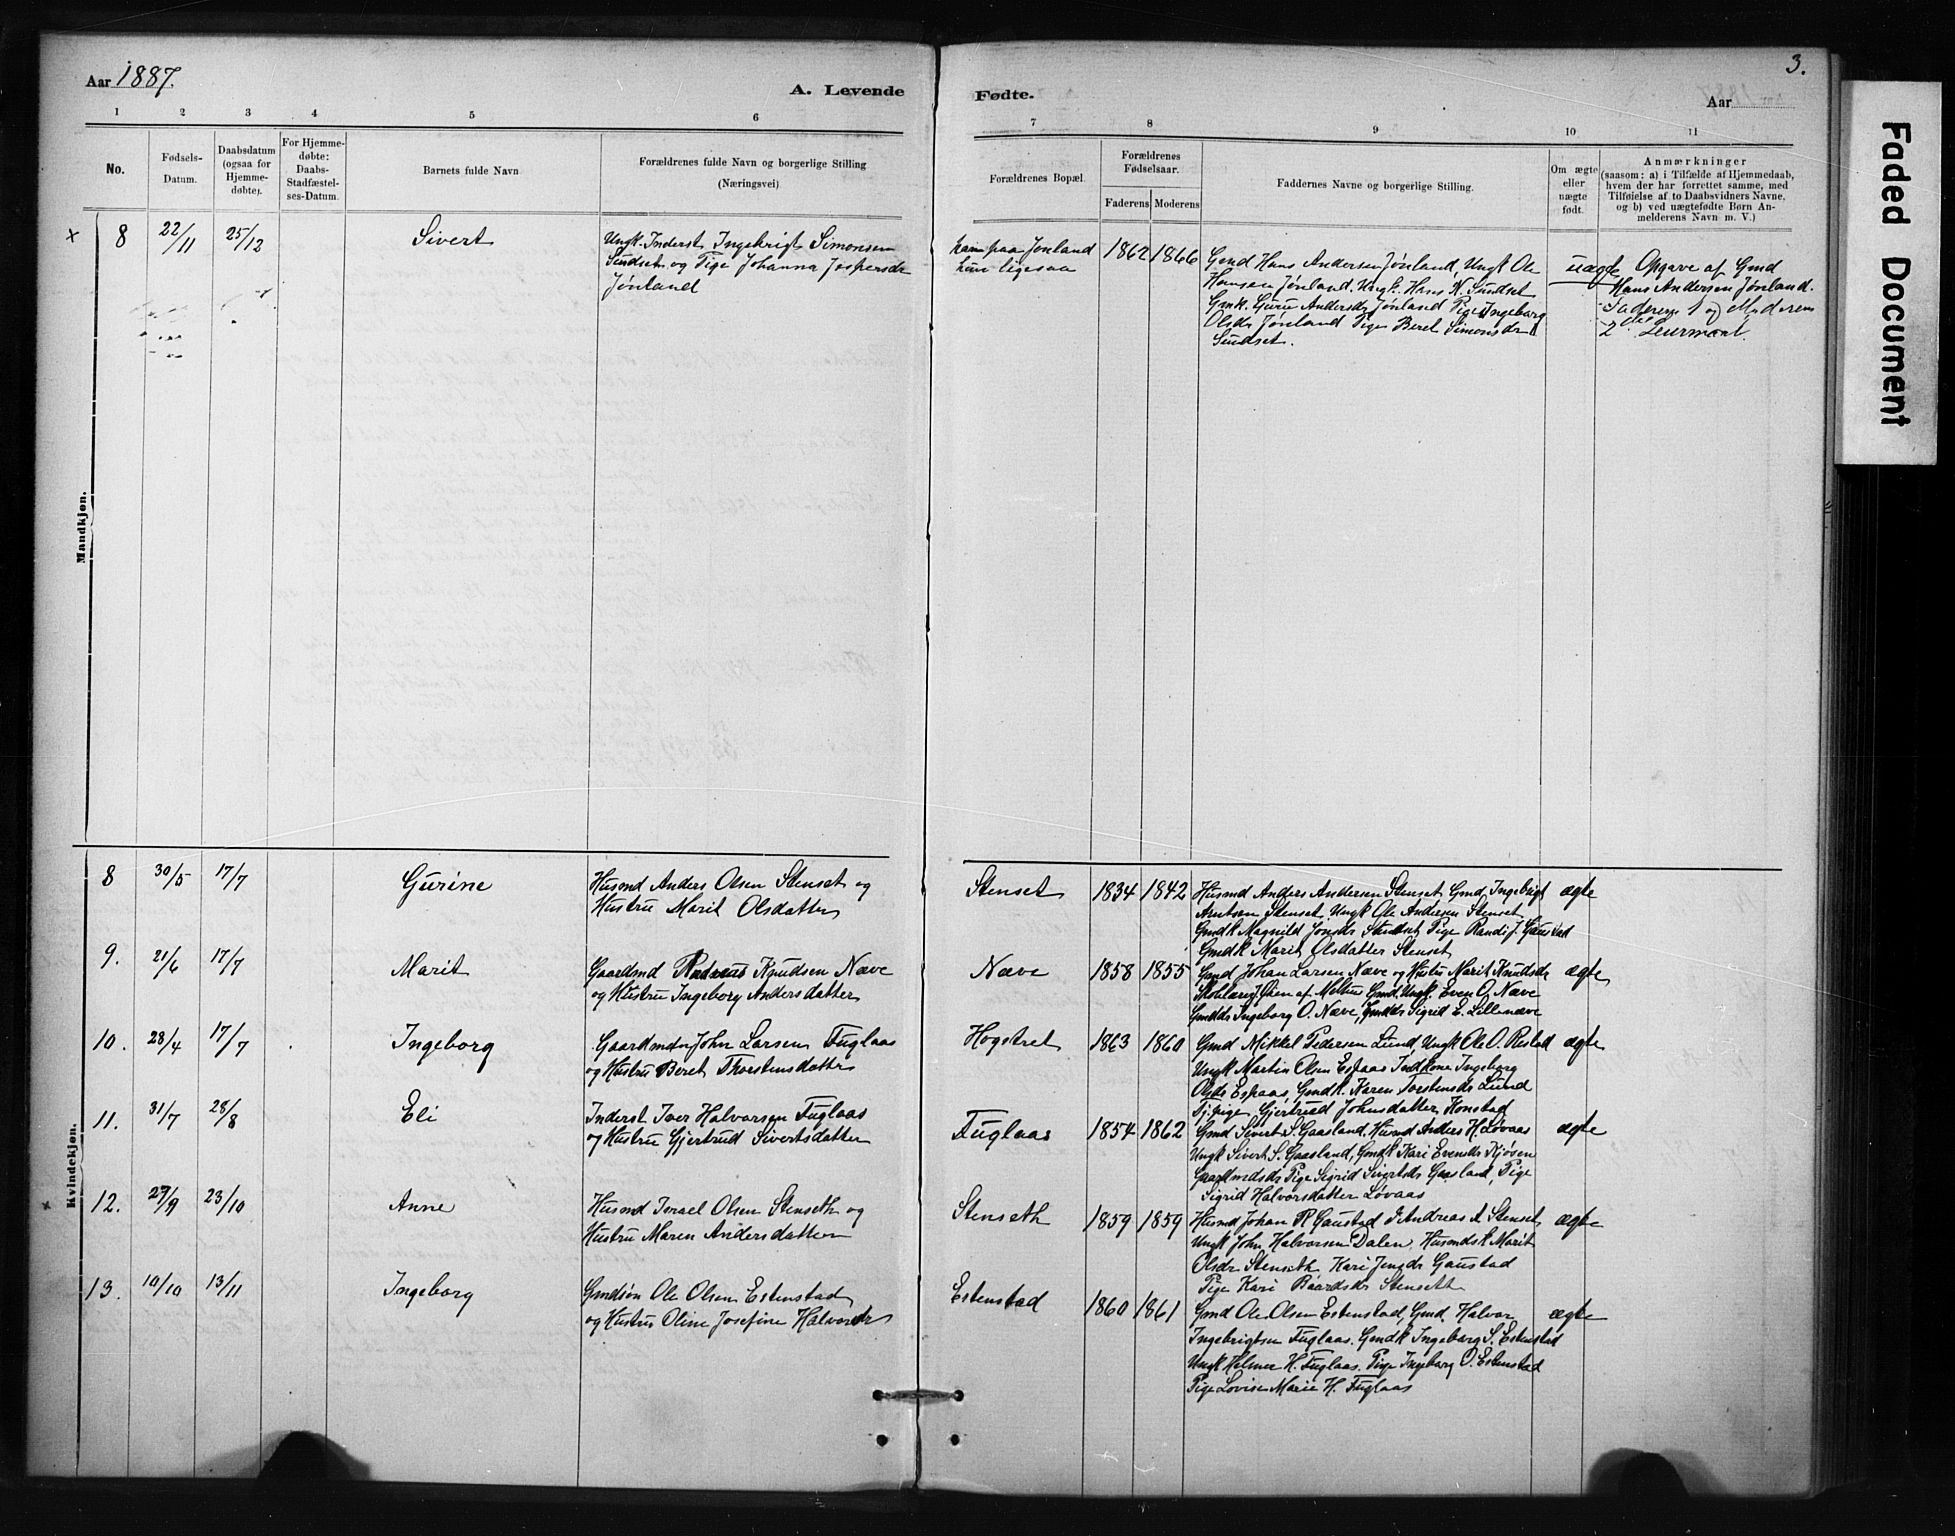 Aar 1887.
A. Levende Fødte.
3.
Aar
Faded Document
1 2 3 4 5 6 7 8 9 10 11
No.
Fødsels-Datum.
Daabsdatum (ogsaa for Hjemme-døbte).
For Hjemme-døbte: Daabs-Stadfæstel-ses-Datum.
Barnets fulde Navn
Forældrenes fulde Navn og borgerlige Stilling (Næringsvei)
Forældrenes Bopæl.
Forældrenes Fødselsaar.
Faderens Moderens
Faddernes Navne og borgerlige Stilling.
Om ægte eller uægte født.
Anmærkninger
(saasom: a) i Tilfælde af Hjemmedaab,
hvem der har forrettet samme, med
Tilføielse af to Daabsvidners Navne,
og b) ved uægtefødte Børn An-
melderens Navn m. V.)
Mandkjøn.
x 8 22/11 25/12 Sivert
Ungk. Inderst Ingebrigt Simonsen
Sundset og Pige Johanna Jespersdr
Jønland
han paa Jønland
hun ligesaa
1862 1866
Gmd Hans Andersen Jønland, Ungk Ole
Hansen Jønland, Ungk. Hans H. Sundset
Gmk. Guru Andersdr Jønland Pige Ingeborg
Olsdr Jønland Pige Beret Simonsdr
Sundset.
uægte
Opgave af Gmd
Hans Andersen Jønland.
Faderens 1 og Moderens
2det Leiermaal.
Kvindekjøn.
8 30/5 17/7 Gurine
Husmd Anders Olsen Stenset og
Hustru Marit Olsdatter
Stenset 1834 1842
Husmd Anders Andersen Stenset, Gmd Ingebrigt
Arntsen Stenset, Ungk Ole Andersen Stenset
Gmdk Magnild Jonsdr Stenset Pige Randi J. Gaustad
Gmdk Marit Olsdatter Stenset
ægte
9. 21/6 17/7 Marit
Gaardmd Knudsen Næve
og Hustru Ingeborg Andersdatter
Næve 1858 1855
Gmd Johan Larsen Næve og Hustru Marit Knudsdr
af Gmd. Ungk. Even O. Næve
Gmdds Ingeborg O. Næve, Gmdds Sigrid E. Lillenæve
ægte
10. 28/4 17/7 Ingeborg
Gaardmd John Larsen Fuglaas
og Hustru Beret Thorstensdatter
Hogstret 1863 1860
Gmd Mikkel Pedersen Lund Ungk Ole O. Restad
Ungk Martin Olsen Espaas Indkone Ingeborg
Olsdr Espaas, Gmdk. Karen Torstensdr Lund
Tj. pige Gjertrud Johnsdatter Konstad
ægte
11. 31/7 28/8 Eli
Inderst Iver Halvorsen Fuglaas
og Hustru Gjertrud Sivertsdatter
Fuglaas 1854 1862
Gmd Sivert S. Gaasland, Husmd Anders H. Løvaas
Ungk Sivert S. Gaasland, Gmdk Kari Evensdr Kjøsen
Gaardmdsdr Pige Sigrid Sivertsdr Gaasland, Pige
Sigrid Halvorsdatter Løvaas
ægte
x 12. 27/9 23/10 Anne
Husmd Israel Olsen Stenseth og
Hustru Maren Andersdatter
Stenseth 1859 1859
Husmd Johan P. Gaustad, Andreas A Stenset
Ungk John Halvorsen Dalen, Husmdsk Marit
Olsdr Stenseth Kari Jensdr Gaustad
Pige Kari Baardsdr Stenseth
ægte
13. 10/10 13/11 Ingeborg
Gmdsøn Ole Olsen Estenstad
og Hustru Oline Josefine Halvorsdr
Estenstad 1860 1861
Gmd Ole Olsen Estenstad, Gmd Halvor
Ingebrigtsen Fuglaas. Gmdk Ingeborg S. Estenstad
Ungk Helmer H. Fuglaas. Pige Ingeborg O. Estenstad
Pige Lovise Marie H. Fuglaas
ægte